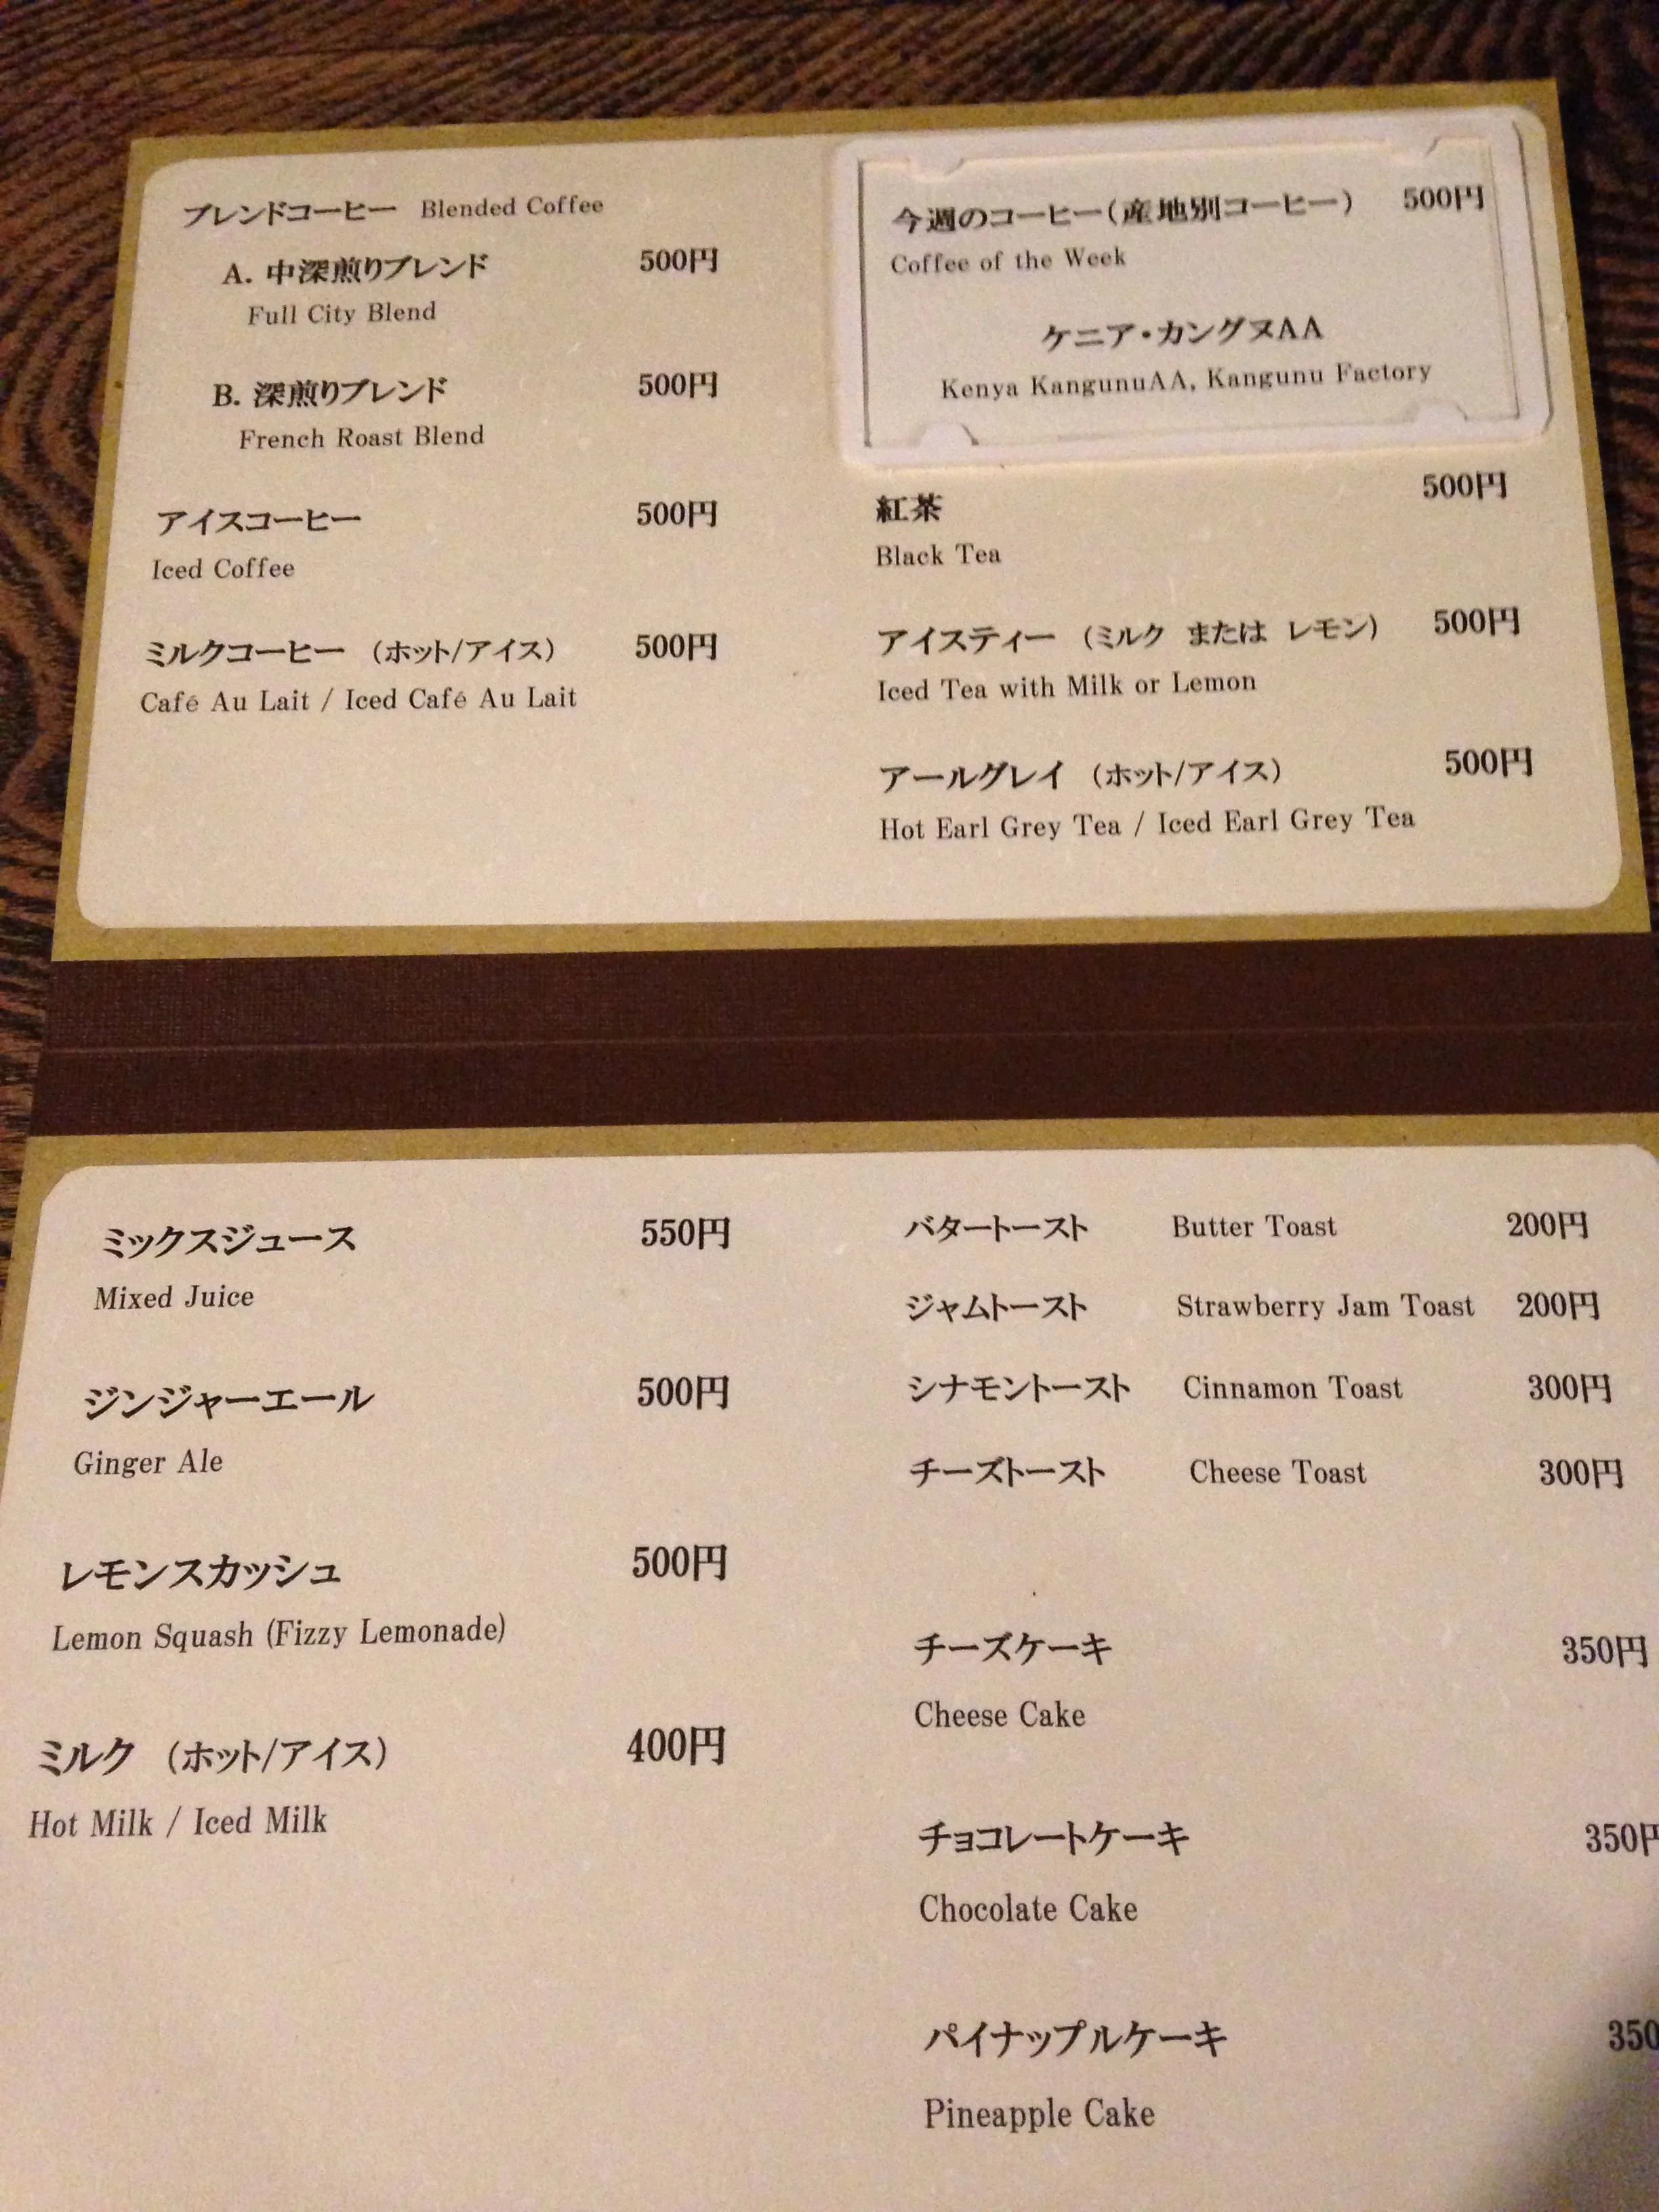 ブレンドコーヒー Blended Coffee
A. 中深煎りブレンド 500円
Full City Blend
B. 深煎りブレンド 500円
French Roast Blend
アイスコーヒー 500円
Iced Coffee
ミルクコーヒー （ホット/アイス） 500円
Café Au Lait / Iced Café Au Lait
今週のコーヒー（産地別コーヒー） 500円
Coffee of the Week
ケニア・カングヌAA
Kenya KangunuAA, Kangunu Factory
紅茶 500円
Black Tea
アイスティー （ミルク または レモン） 500円
Iced Tea with Milk or Lemon
アールグレイ （ホット/アイス） 500円
Hot Earl Grey Tea / Iced Earl Grey Tea
ミックスジュース 550円
Mixed Juice
ジンジャーエール 500円
Ginger Ale
レモンスカッシュ 500円
Lemon Squash (Fizzy Lemonade)
ミルク （ホット/アイス） 400円
Hot Milk / Iced Milk
バタートースト Butter Toast 200円
ジャムトースト Strawberry Jam Toast 200円
シナモントースト Cinnamon Toast 300円
チーズトースト Cheese Toast 300円
チーズケーキ 350円
Cheese Cake
チョコレートケーキ 350円
Chocolate Cake
パイナップルケーキ 350
Pineapple Cake